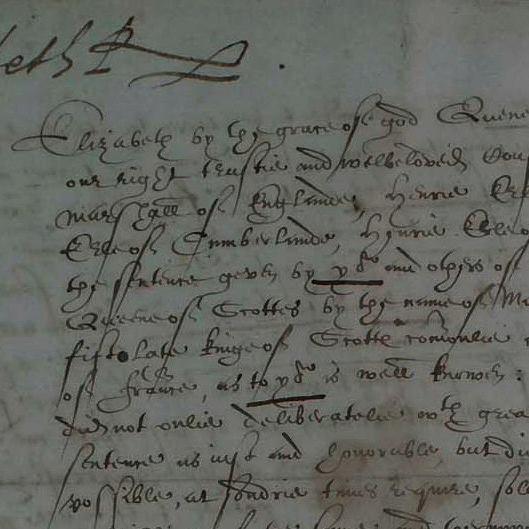 eth R
Elizabeth by the grace of god Quene
our right trustie and welbeloved Cou
marshall of Englande, Henrie Erl
Erle of Cumberlande, Henrie Erle o
the sentence geven by yo and others of
Queene of Scottes by the name of Ma
fift late kinge of Scottl comonlie
of france, as to yo is well knowen :
did not onlie deliberatelie wth grea
sentence as iust and honorable, but di
possible, at sondrie times require, sol